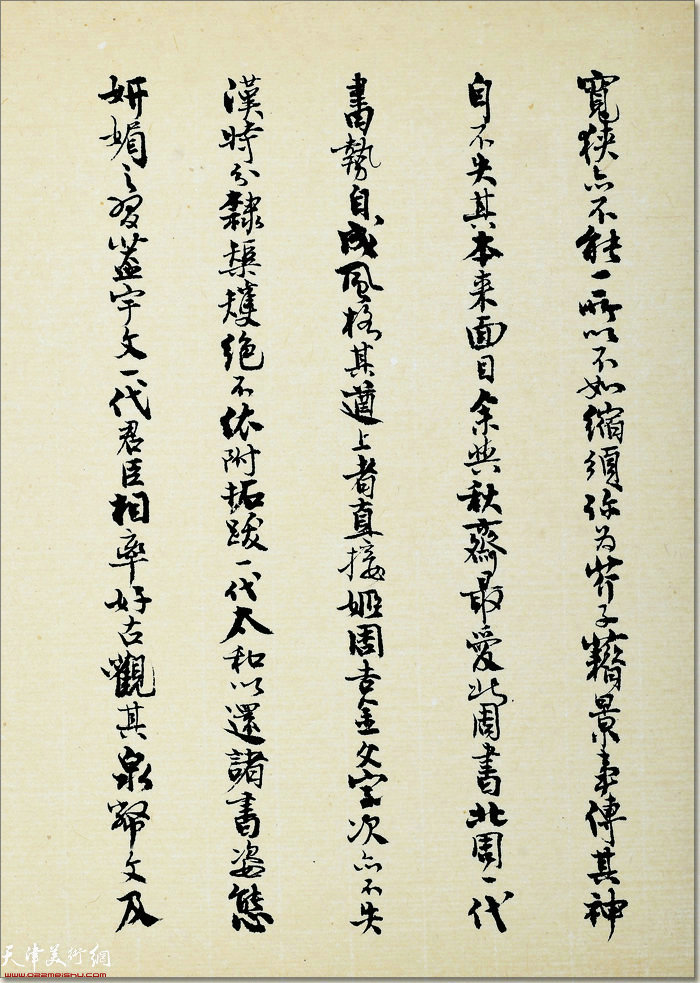 寬狹亦不能一所以不如縮須弥為芥子藉景來傳其神
自不失其本来面目余與秋齋最愛北周書北周一代
書勢自成風格其遒上者直接姬周吉金文字次亦不失
漢時分隸榘矱絕不依附拓跋一代太和以還諸書姿態
妍媚之習蓋宇文一代君臣相率好古觀其泉幣文及
天津美術網
www.022meishu.com